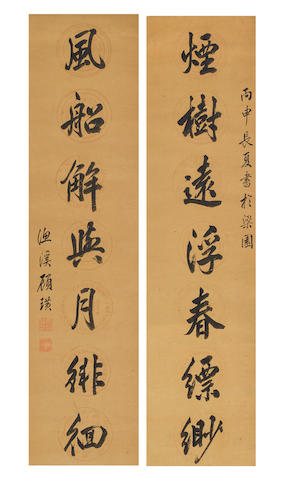 丙申長夏書於梁園
煙樹遠浮春縹緲
風船解與月徘徊
漁溪顧璜